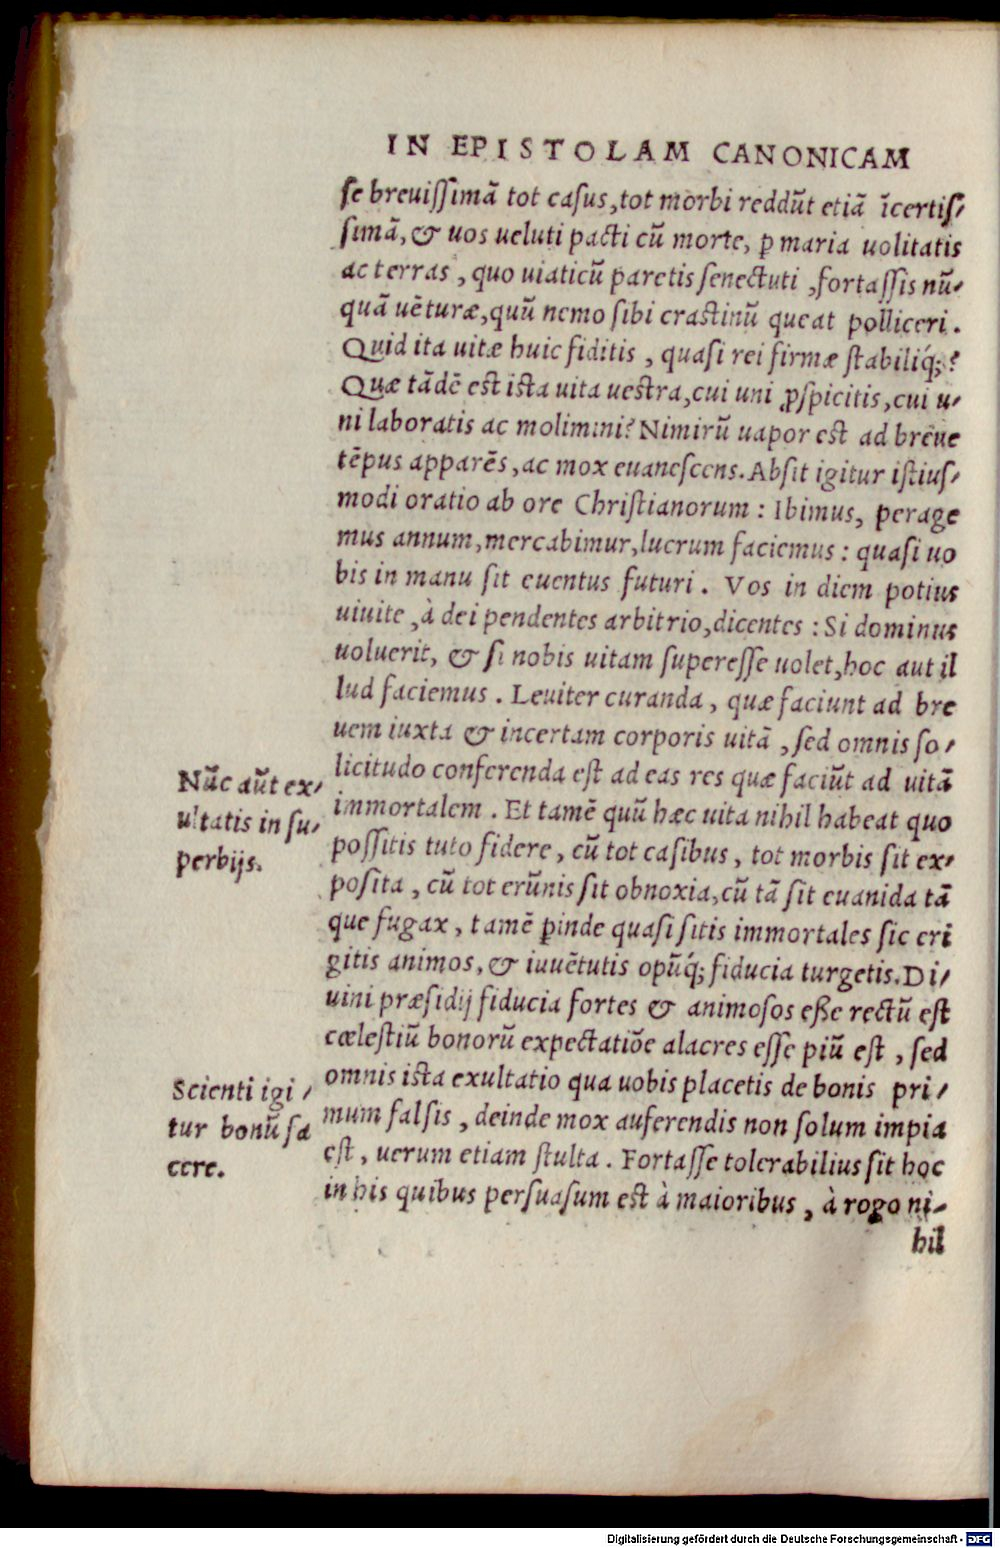 IN EPISTOLAM CANONICAM
se breuissimā tot casus, tot morbi reddūt etiā īcertis⸗
simā, & uos ueluti pacti cū morte, ꝑ maria uolitatis
ac terras, quo uiaticū paretis senectuti, fortassis nū⸗
quā uēturæ, quū nemo sibi crastinū queat polliceri.
Quid ita uitæ huic fiditis, quasi rei firmæ stabiliq́;?
Quæ tādē est ista uita uestra, cui uni ꝓspicitis, cui u⸗
ni laboratis ac molimini? Nimirū uapor est ad breue
tēpus apparēs, ac mox euanescens. Absit igitur istius⸗
modi oratio ab ore Christianorum: Ibimus, perage
mus annum, mercabimur, lucrum faciemus: quasi uo
bis in manu sit euentus futuri. Vos in diem potius
uiuite, à dei pendentes arbitrio, dicentes: Si dominus
uoluerit, & si nobis uitam superesse uolet, hoc aut il
lud faciemus. Leuiter curanda, quæ faciunt ad bre
uem iuxta & incertam corporis uitā, sed omnis so⸗
licitudo conferenda est ad eas res quæ faciūt ad uitā
immortalem. Et tamē quū hæc uita nihil habeat quo
possitis tuto fidere, cū tot casibus, tot morbis sit ex⸗
posita, cū tot erūnis sit obnoxia, cū tā sit euanida tā
que fugax, tamē ꝑinde quasi sitis immortales sic eri
gitis animos, & iuuētutis opūq́; fiducia turgetis. Di⸗
uini præsidij fiducia fortes & animosos eße rectū est
cælestiū bonorū expectatiōe alacres esse piū est, sed
omnis ista exultatio qua uobis placetis de bonis pri⸗
mum falsis, deinde mox auferendis non solum impia
est, uerum etiam stulta. Fortasse tolerabilius sit hoc
in his quibus persuasum est à maioribus, à rogo ni⸗
hil
Nūc aūt ex⸗
ultatis in su⸗
perbijs.
Scienti igi⸗
tur bonū fa
cere.
Digitalisierung gefördert durch die Deutsche Forschungsgemeinschaft - DFG